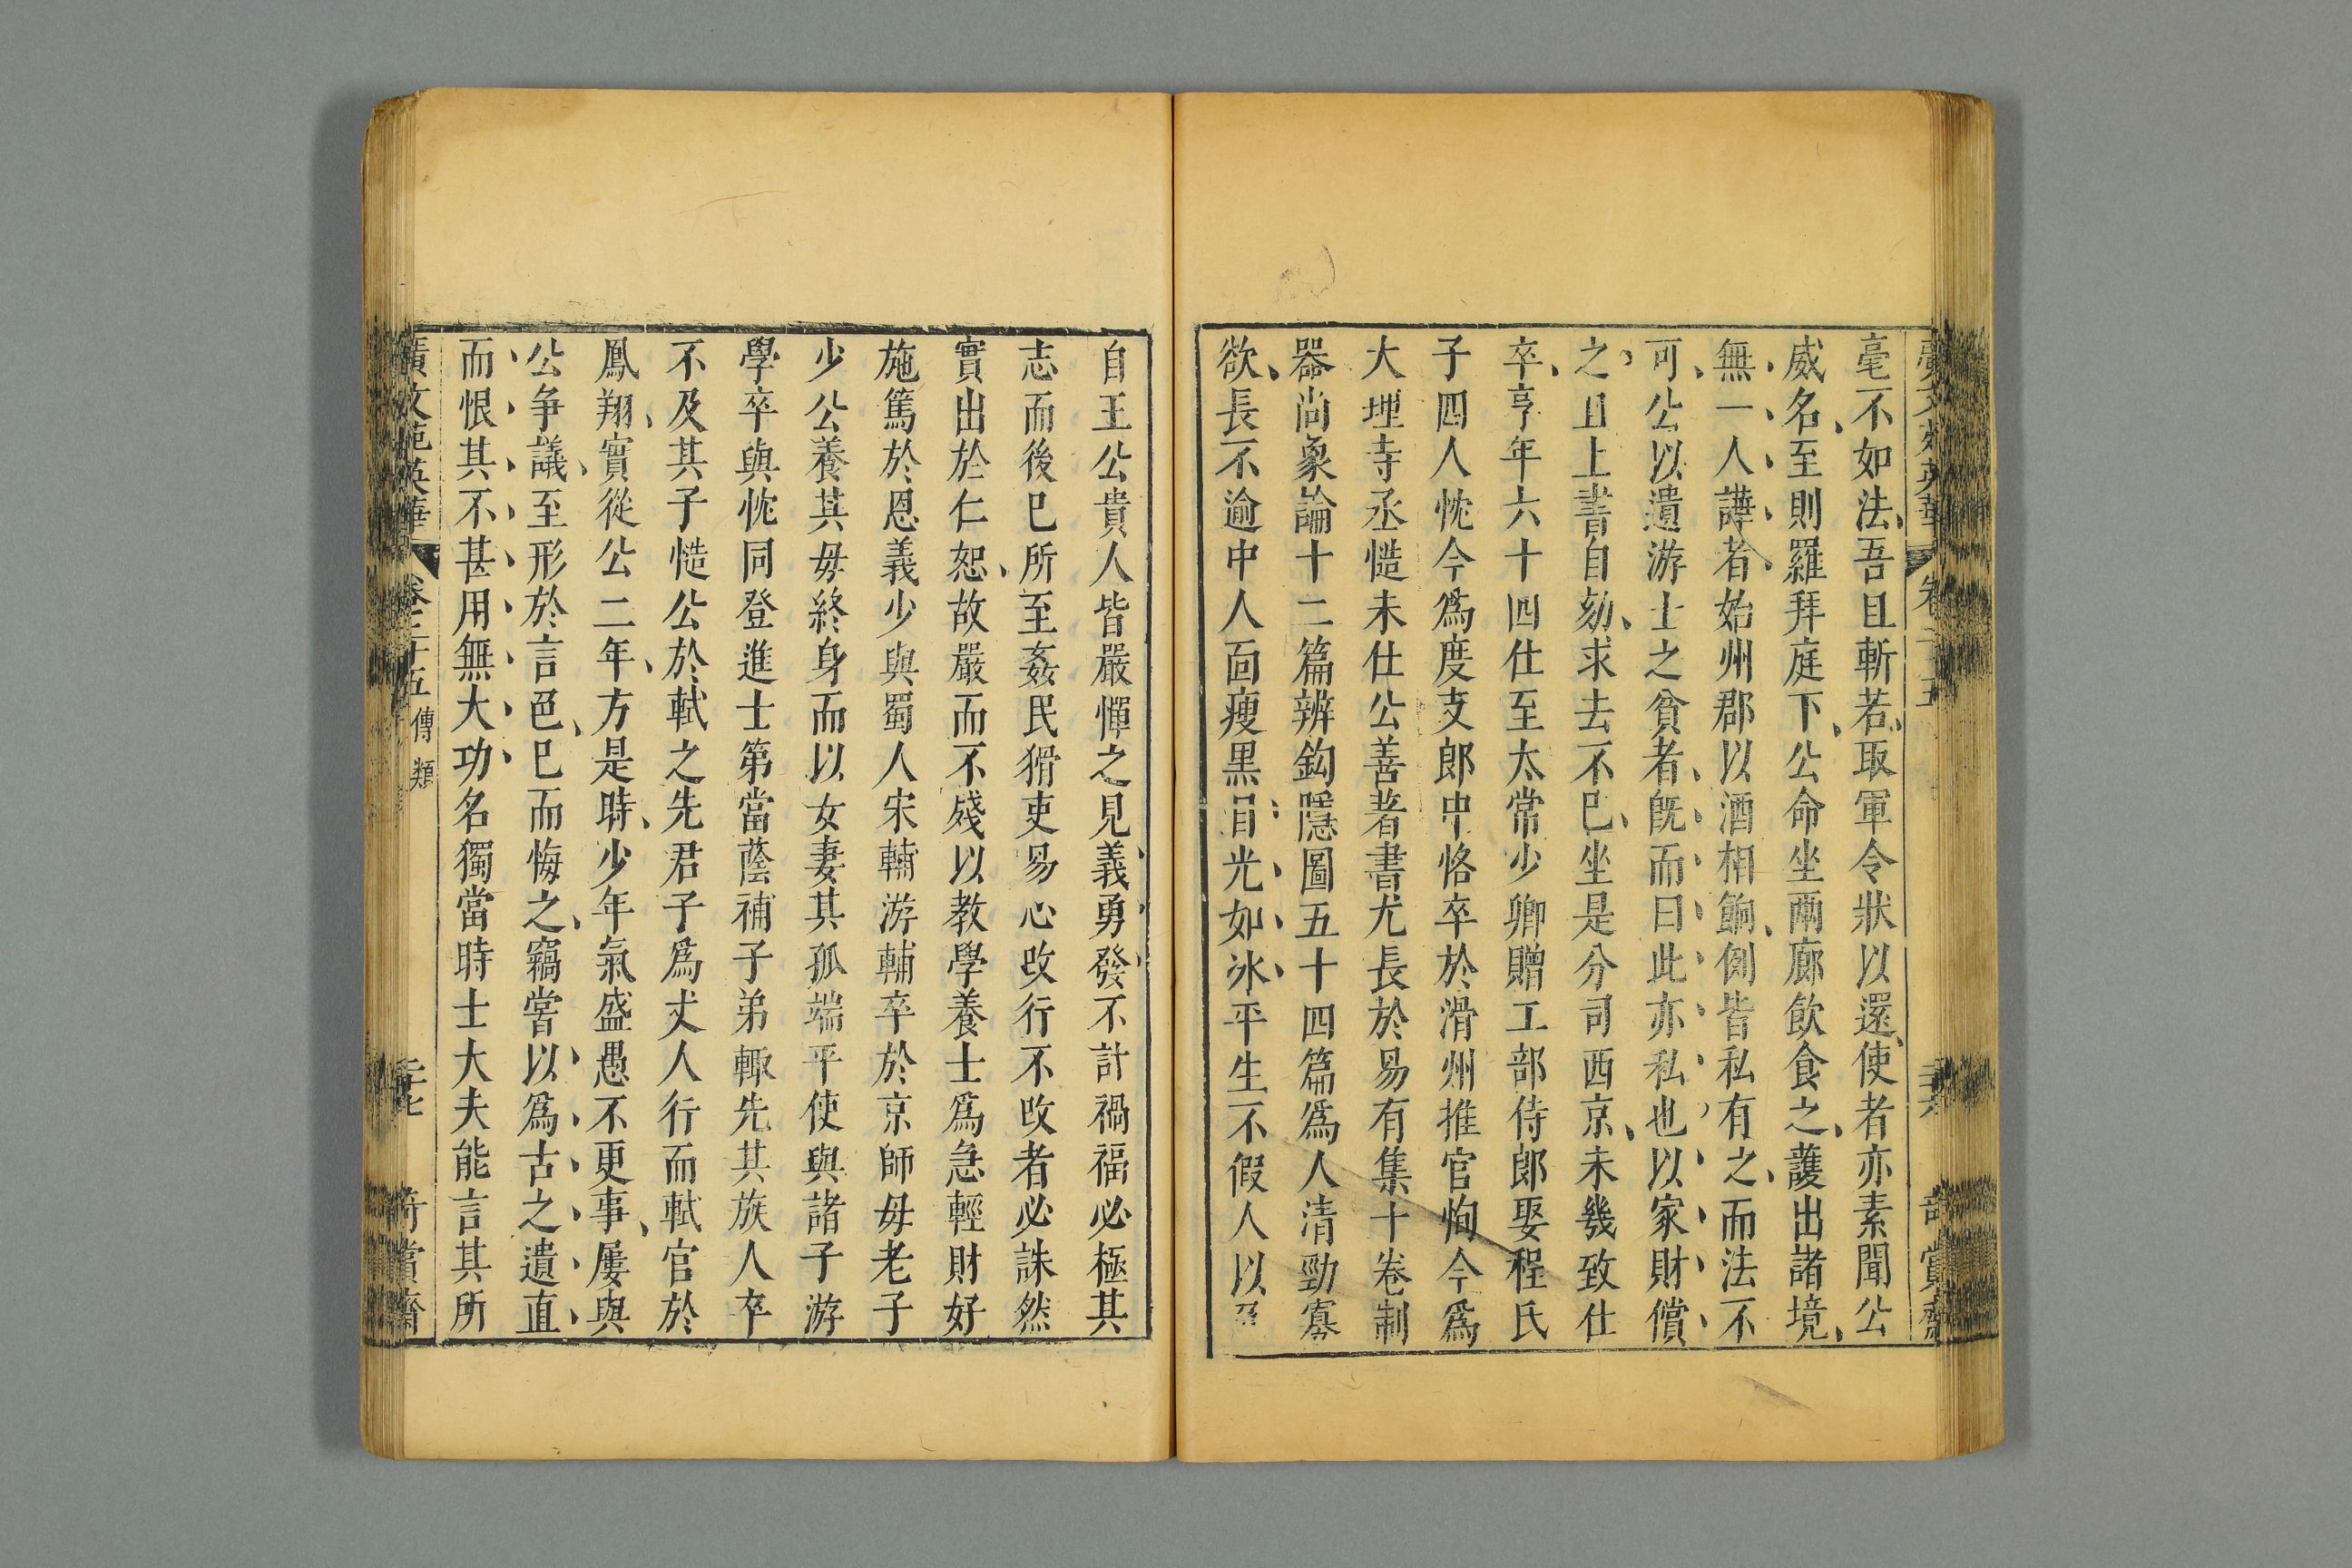 廣文苑英華 卷二十五 二十六 奇賞齋
毫不如法吾且斬若取軍令狀以還使者亦素聞公
威名至則羅拜庭下公命坐兩廊飲食之護出諸境
無一人譁者始州郡以酒相餉例皆私有之而法不
可公以遺游士之貧者既而曰此亦私也以家財償
之且上書自劾求去不已坐是分司西京未幾致仕
卒享年六十四仕至太常少卿贈工部侍郎娶程氏
子四人忱今爲度支郎中恪卒於滑州推官恂今爲
大理寺丞慥未仕公善著書尤長於易有集十卷制
器尚象論十二篇辨鈎隱圖五十四篇爲人清勁寡
欲長不逾中人面瘦黑目光如冰平生不假人以
自王公貴人皆嚴憚之見義勇發不計禍福必極其
志而後已所至姦民猾吏易心改行不改者必誅然
實出於仁恕故嚴而不殘以教學養士爲急輕財好
施篤於恩義少與蜀人宋輔游輔卒於京師母老子
少公養其母終身而以女妻其孤端平使與諸子游
學卒與忱同登進士第當蔭補子弟輙先其族人卒
不及其子慥公於軾之先君子爲丈人行而軾官於
鳳翔實從公二年方是時少年氣盛愚不更事屢與
公争議至形於言色已而悔之竊嘗以爲古之遺直
而恨其不甚用無大功名獨當時士大夫能言其所
廣文苑英華 卷二十五 傳類 二十七 奇賞齋